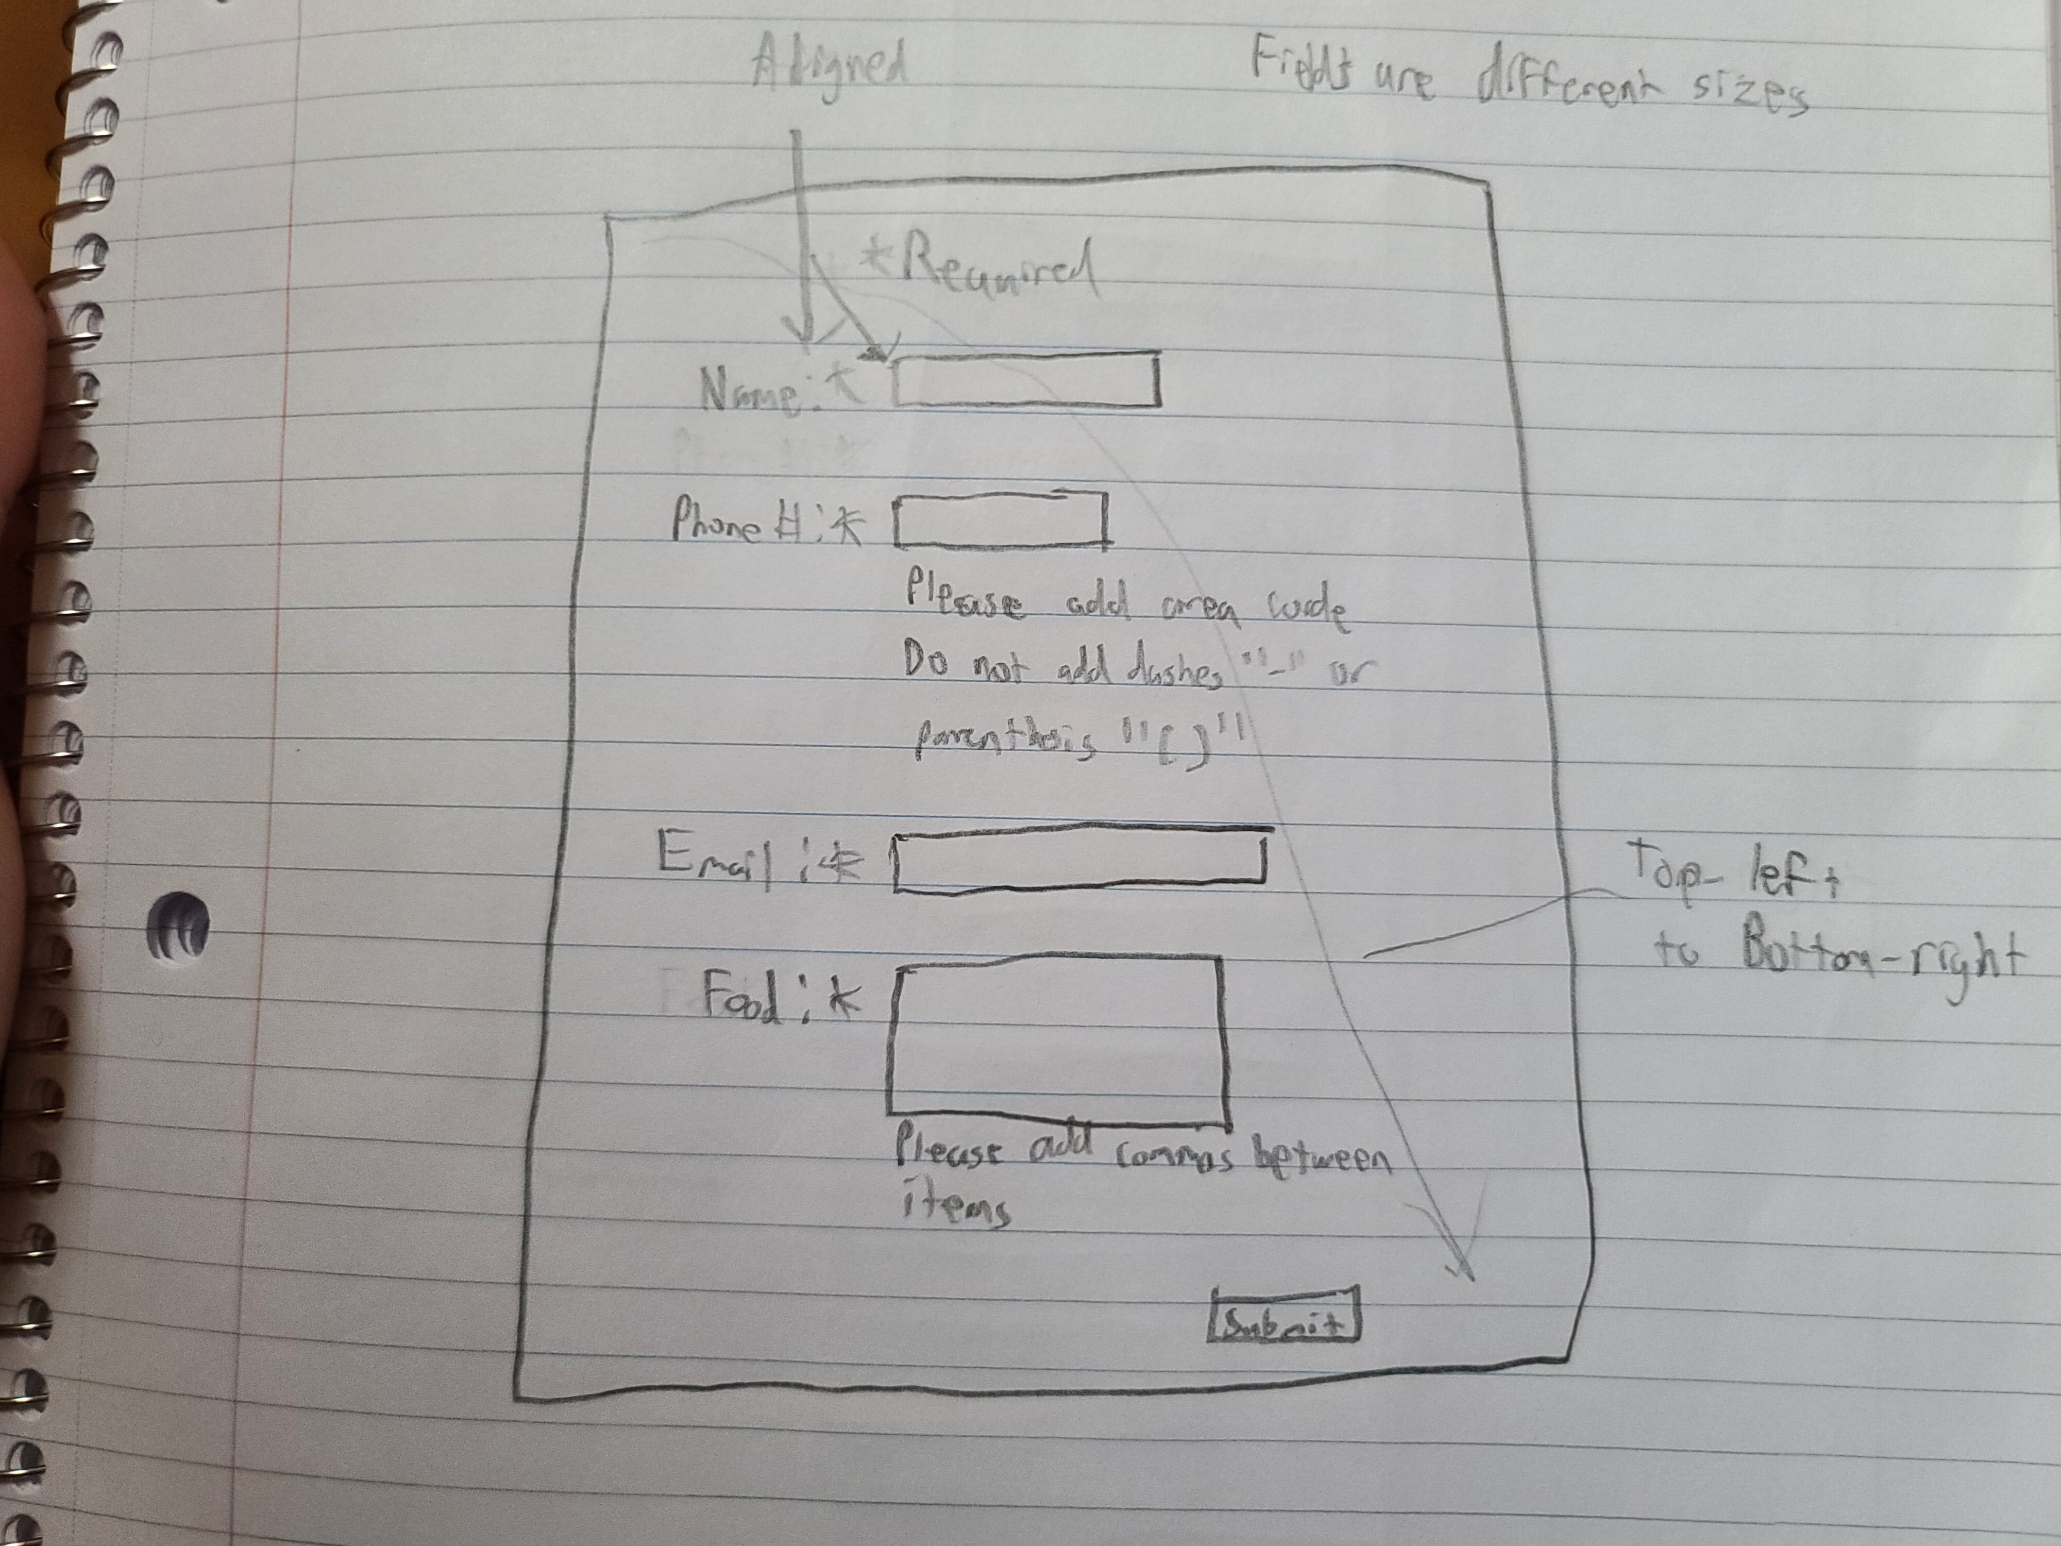 Aligned
Fields are different sizes
*Required
Name:*
Phone #:*
Please add area code
Do not add dashes "-" or
parenthesis "( )"
Email:*
Top-left
to Bottom-right
Food:*
Please add commas between
items
Submit